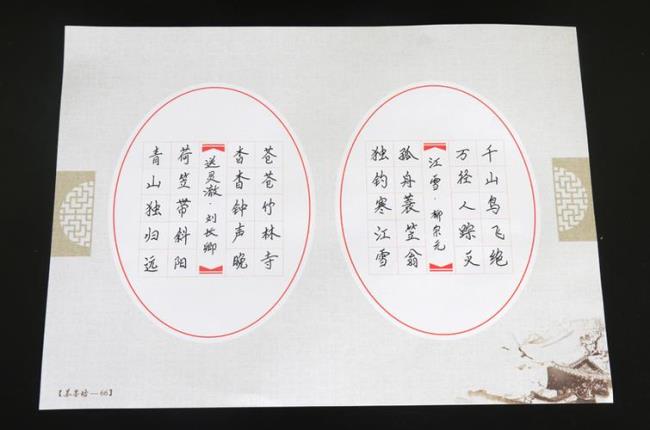 千山鸟飞绝
万径人踪灭
江雪·柳宗元
孤舟蓑笠翁
独钓寒江雪
苍苍竹林寺
杳杳钟声晚
送灵澈·刘长卿
荷笠带斜阳
青山独归远
66